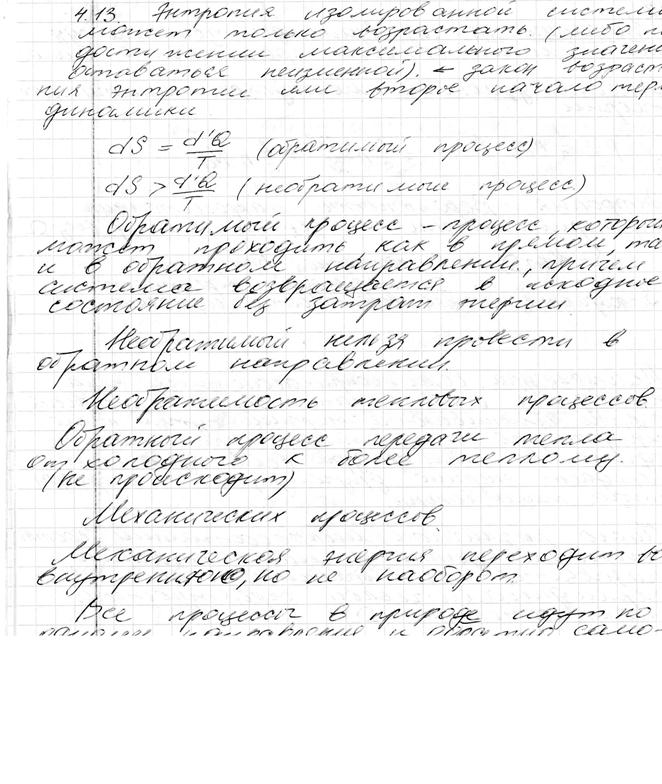 4.13. Энтропия изолированной системы
может только возрастать (либо п
достижении максимального значени
оставаться неизменной). ← закон возраст
ния энтропии или второе начало тер
динамики
dS = d'Q/T (обратимый процесс)
dS > d'Q/T (необратимые процесс)
Обратимый процесс - процесс, который
может проходить как в прямом, та
и в обратном направлении, причем
система возвращается в исходное
состояние без затрат энергии
Необратимый нельзя провести в
обратном направлении.
Необратимость тепловых процессов
Обратный процесс передачи тепла
от холодного к более теплому.
(не происходит)
Механических процессов.
Механическая энергия переходит в
внутреннюю, но не наоборот.
Все процессы в природе идут по
направлении и обратно само-